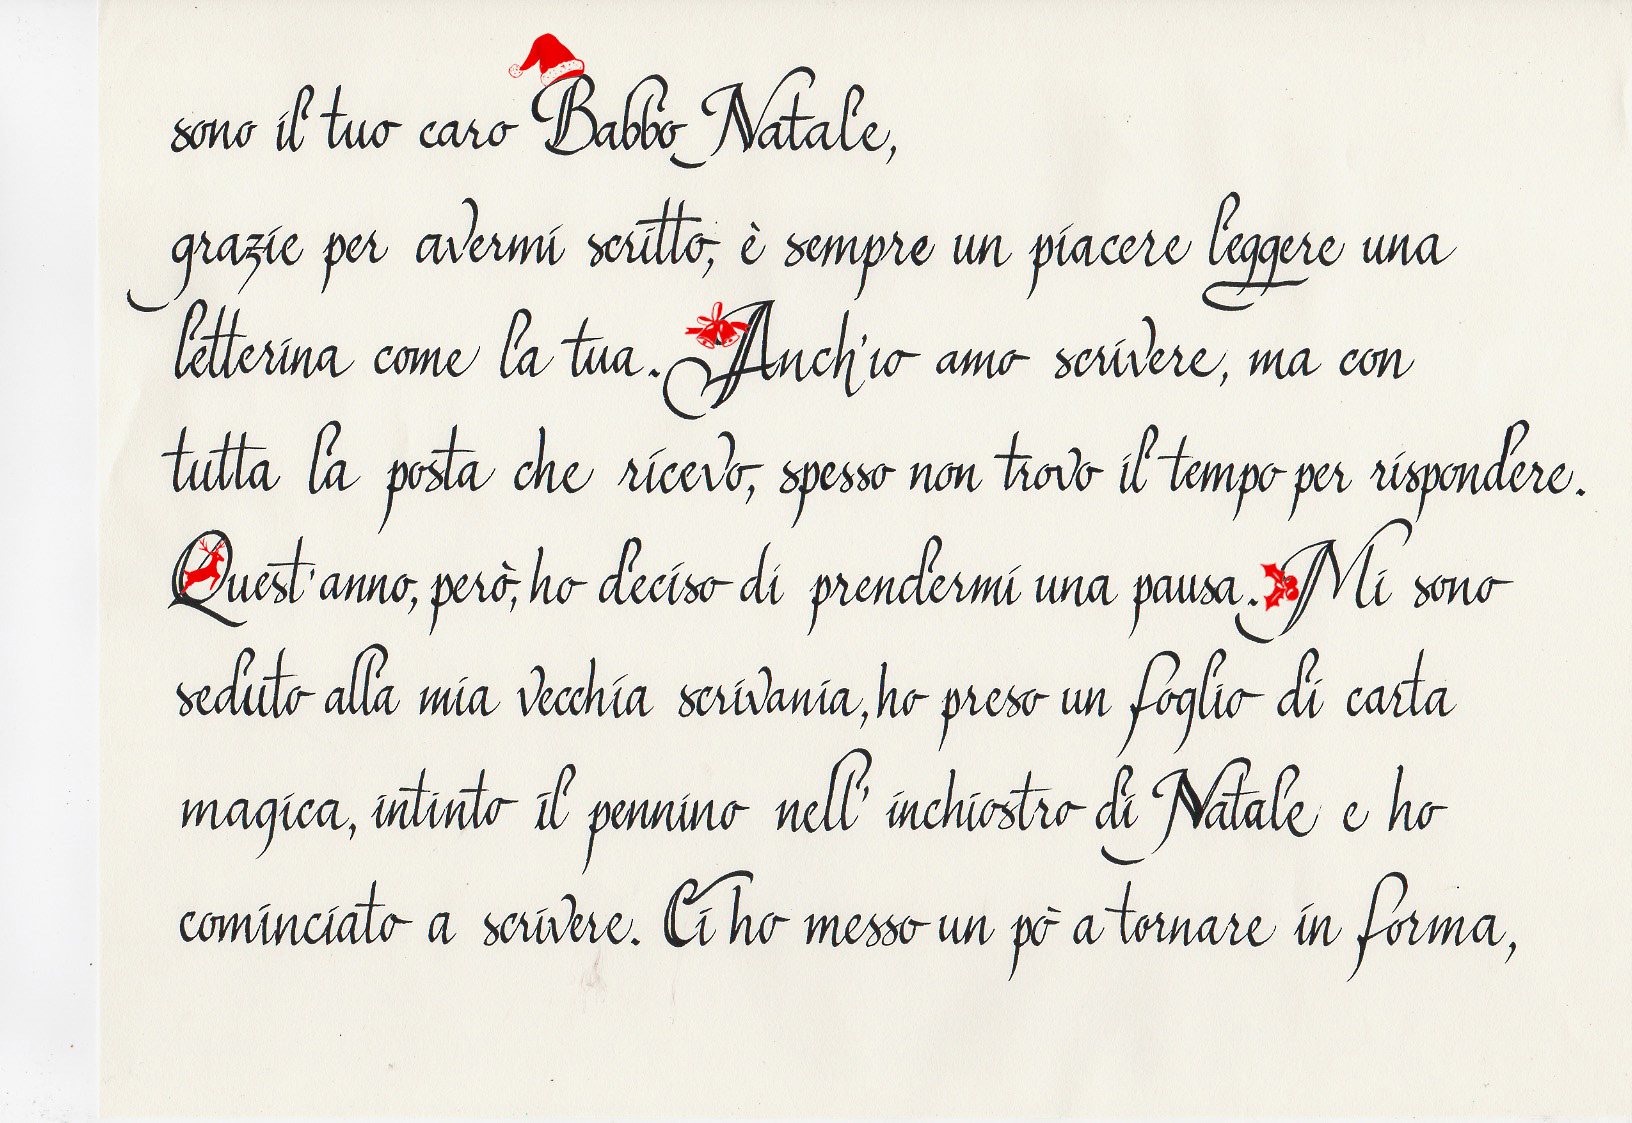 sono il tuo caro Babbo Natale,
grazie per avermi scritto, è sempre un piacere leggere una
letterina come la tua. Anch'io amo scrivere, ma con
tutta la posta che ricevo, spesso non trovo il tempo per rispondere.
Quest'anno, però, ho deciso di prendermi una pausa. Mi sono
seduto alla mia vecchia scrivania, ho preso un foglio di carta
magica, intinto il pennino nell'inchiostro di Natale e ho
cominciato a scrivere. Ci ho messo un pò a tornare in forma,